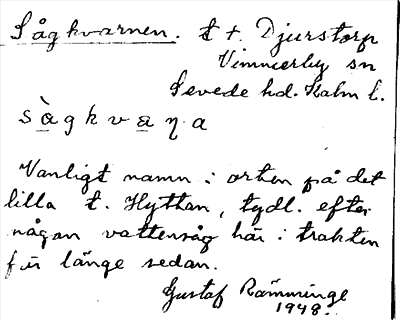 Sågkvarnen. t t. Djurstorp
Vimmerby sn
Sevede hd. Kalm l.
sàgkvaɳa
Vanligt namn i orten på det
lilla t. Hyttan, tydl. efter
någon vattensåg här i trakten
för länge sedan.
Gustaf Rämminge
1948.